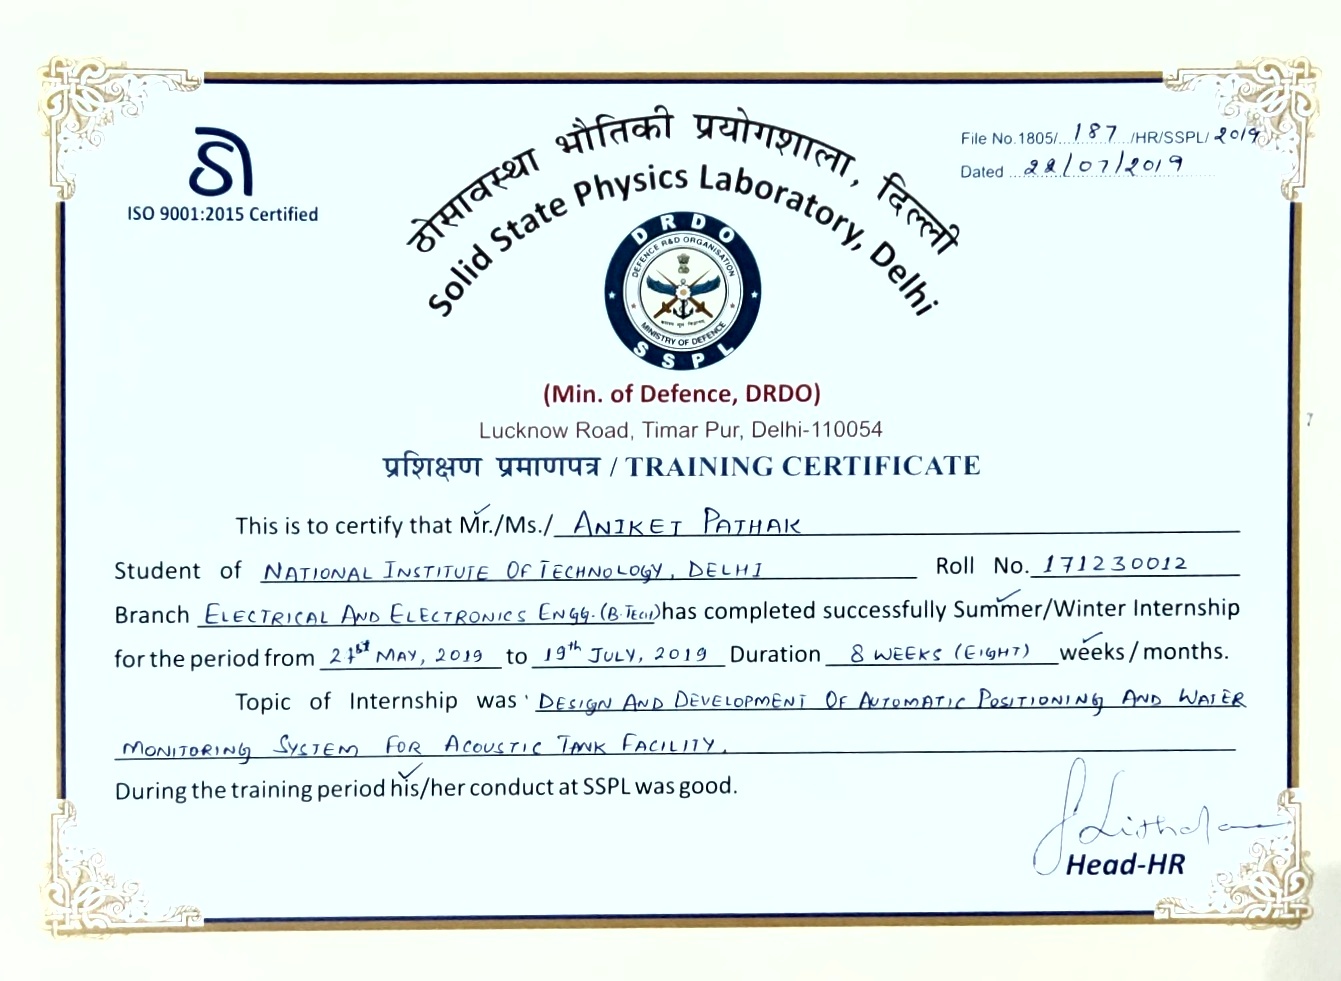 ठी
ISO 9001:2015 Certified
ठोसावस्था भौतिकी प्रयोगशाला, दिल्ली
Solid State Physics Laboratory, Delhi
File No.1805/..187../HR/SSPL/2019
Dated ...22/07/2019
DRDO
DEFENCE R&D ORGANISATION
MINISTRY OF DEFENCE
SSPL
(Min. of Defence, DRDO)
Lucknow Road, Timar Pur, Delhi-110054
प्रशिक्षण प्रमाणपत्र / TRAINING CERTIFICATE
This is to certify that Mr./Ms./ ANIKET PATHAK
Student of NATIONAL INSTITUTE OF TECHNOLOGY, DELHI Roll No. 171230012
Branch ELECTRICAL AND ELECTRONICS ENGG.(B.TECH) has completed successfully Summer/Winter Internship
for the period from 21st MAY, 2019 to 19th JULY, 2019 Duration 8 WEEKS (EIGHT) weeks/months.
Topic of Internship was DESIGN AND DEVELOPMENT OF AUTOMATIC POSITIONING AND WATER
MONITORING SYSTEM FOR ACOUSTIC TANK FACILITY.
During the training period his/her conduct at SSPL was good.
Head-HR